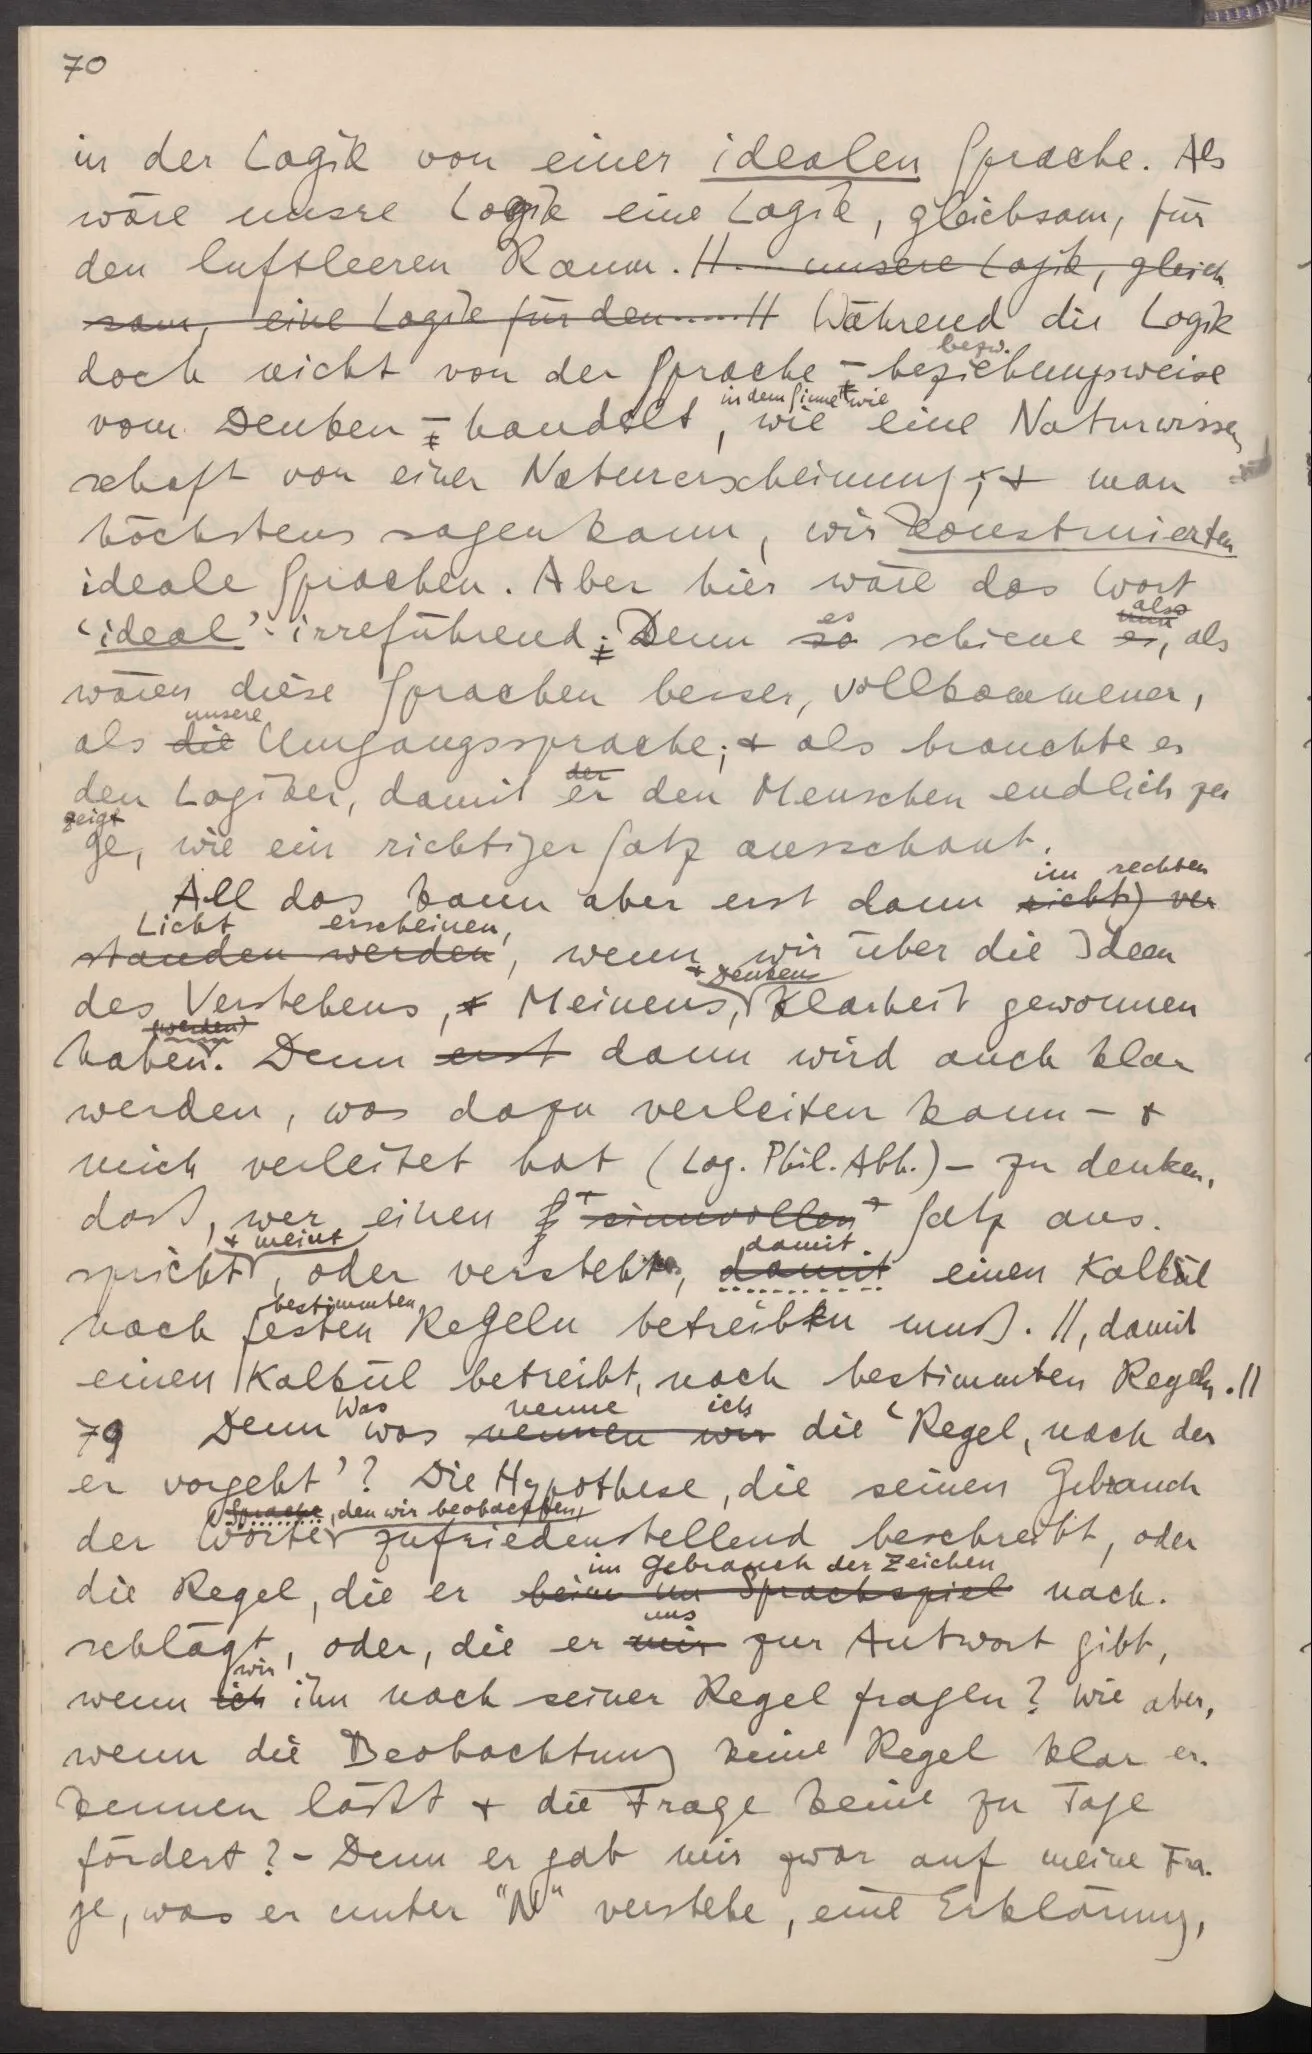 70
in der Logik von einer idealen Sprache. Als
wäre unsre Logik eine Logik, gleichsam, für
den luftleeren Raum. // .... unsere Logik, gleich
sam, eine Logik für den ...... // Während die Logik
bezw.
doch nicht von der Sprache – beziehungsweise
in dem Sinne wie
vom Denken – handelt, wie eine Naturwissen
schaft von einer Naturerscheinung; & man
höchstens sagen kann, wir konstruierten
ideale Sprachen. Aber hier wäre das Wort
es also
und
‘ideal’ irreführend; Denn so schiene es, als
wären diese Sprachen besser, vollkommener,
unsere
als die Umgangssprache; & als brauchte es
der
den Logiker, damit er den Menschen endlich zei
zeigt
ge, wie ein richtiger Satz ausschaut.
im rechten
All das kann aber erst dann richtig ver
Licht erscheinen,
standen werden, wenn wir über die Ideen
& Denkens
des Verstehens, & Meinens, Klarheit gewonnen
(werden)
haben. Denn erst dann wird auch klar
werden, was dazu verleiten kann – &
mich verleitet hat (Log. Phil. Abh.) – zu denken,
daß, wer einen S sinnvollen Satz aus-
& meint
damit
spricht, oder versteht, damit einen Kalkül
bestimmten
nach festen Regeln betreiben muß. //, damit
einen Kalkül betreibt, nach bestimmten Regeln. //
Was nenne ich
79 Denn was nennen wir die ‘Regel, nach der
er vorgeht’? Die Hypothese, die seinen Gebrauch
Sprache, den wir beobachten,
der Worte zufriedenstellend beschreibt, oder
im Gebrauch der Zeichen
die Regel, die er beim im Sprachspiel nach-
uns
schlägt, oder, die er mir zur Antwort gibt,
wir
wenn ich ihn nach seiner Regel fragen? Wie aber,
wenn die Beobachtung keine Regel klar er-
kennen läßt & die Frage keine zu Tage
fördert? – Denn er gab mir zwar auf meine Fra-
ge, was er unter "N" verstehe, eine Erklärung,